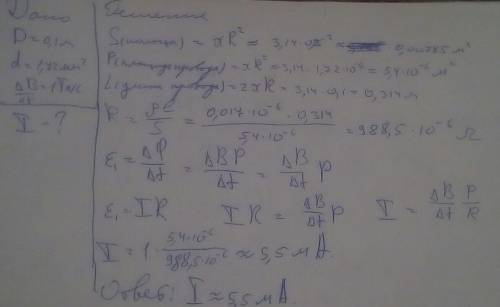 Дано
D = 0,1 м
d = 1,72 мм²
ΔB/Δt = 1 Тл/с
I - ?
Решение
S(контура) = πR² = 3,14 · ≈ 0,00785 м²
P(площ провода) = πR² = 3,14 · 1,72·10⁻⁶ = 5,4·10⁻⁶ м²
L(длина провода) = 2πR = 3,14 · 0,1 = 0,314 м
R = ρL/S = 0,017·10⁻⁶ · 0,314 / 5,4·10⁻⁶ = 988,5·10⁻⁶ Ω
ε₁ = ΔP/Δt = ΔBP/Δt = ΔB/Δt P
ε₁ = IR IR = ΔB/Δt P I = ΔB/Δt P/R
I = 1 · 5,4·10⁻⁶ / 988,5·10⁻⁶ ≈ 5,5 мА.
Ответ: I ≈ 5,5 мА.